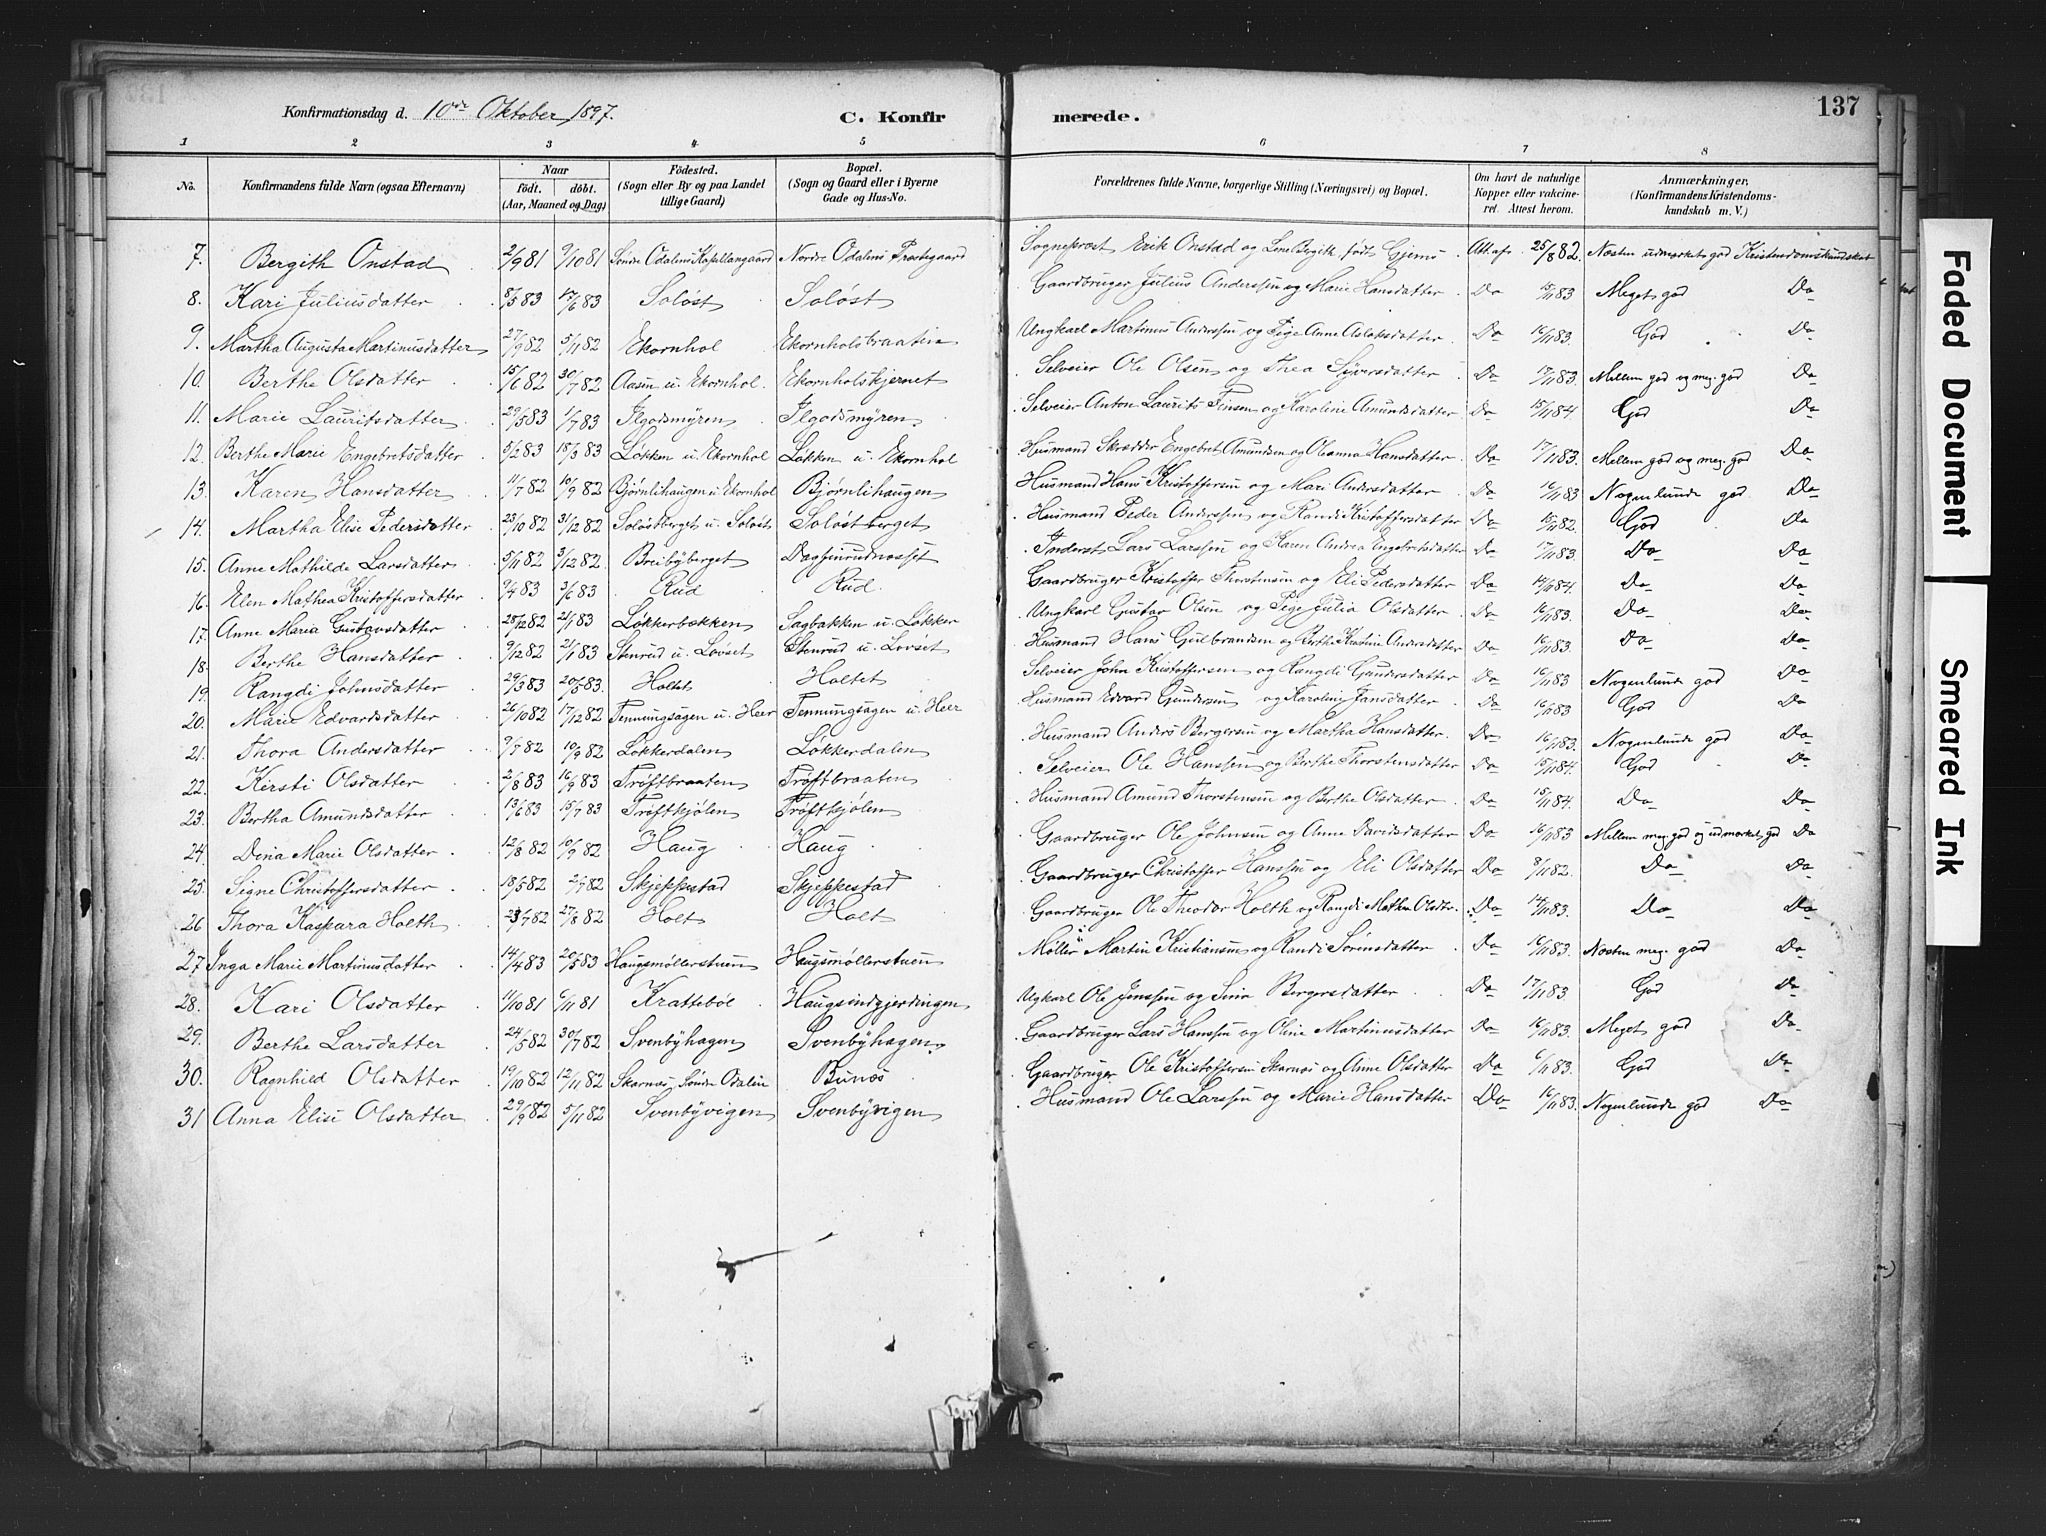 Konfirmationsdag d. 10de Oktober 1897. C. Konfir merede. 137
1 2 3 4 5 6 7 8
No. Konfirmandens fulde Navn (ogsaa Efternavn) Naar födt. döbt. (Aar, Maaned og Dag) Födested. (Sogn eller By og paa Landet tillige Gaard) Bopæl. (Sogn og Gaard eller i Byerne Gade og Hus-No. Forældrenes fulde Navne, borgerlige Stilling (Næringsvei) og Bopæl. Om havt de naturlige Kopper eller vakcineret. Attest herom. Anmærkninger, (Konfirmandens Kristendomskundskab m. V.)
7. Bergith Onstad 2/9 81 9/10 81 Søndre Odalens Kapellangaard Nordre Odalens Præstegaard Sogneprest Erik Onstad og Lene Bergith, født Gjems Att. af 25/8 82. Næsten udmærket god Kristendomskundskab
8. Kari Juliusdatter 8/5 83 17/6 83 Soløst Soløst Gaardbruger Julius Anderssen og Marie Hansdatter Do 15/11 83 Meget god Do
9. Martha Augusta Martinusdatter 27/9 82 5/11 82 Ekornhol Ekornholsbraatin Ungkarl Martinus Anderssen og Pige Anne Aslaksdatter Do 16/11 83. God Do
10. Berthe Olsdatter 15/6 82 30/7 82 Aasen u. Ekornhol. Ekornholskjernet Selveier Ole Olsen og Thea Syversdatter Do 17/11 83. Mellem god og meg. god Do
11. Marie Lauritsdatter 29/5 83 1/7 83 Ilgodsmyren Ilgodsmyren Selveier Anton Laurits Finsen og Karoline Amundsdatter Do 15/11 84. God Do
12. Berthe Marie Engebretsdatter 5/2 83 18/3 83 Løkken u. Ekornhol Løkken u. Ekornhol Husmand Skrædder Engebret Amundsen og Oleanna Hansdatter Do 17/11 83. Mellem god og meg. god Do
13. Karen Hansdatter 11/7 82 10/9 82 Bjørnlihaugen u. Ekornhol Bjørnlihaugen Husmand Hans Kristoffersen og Mari Andersdatter Do 16/11 83 Nogenlunde god Do
14. Martha Elise Pedersdatter 23/10 82 31/12 82 Soløstberget u. Soløst Soløstberget Husmand Peder Anderssen og Randi Kristoffersdatter Do 15/11 82. God Do
15. Anne Mathilde Larsdatter 5/11 82 3/12 82. Breibyberget Dagfinrudnesset Inderst Lars Larssen og Karen Andrea Engebretsdatter Do 17/11 83. Do Do
16. Elen Mathea Kristoffersdatter 9/4 83 3/6 83 Rud Rud Gaardbruger Kristoffer Thorstensen og Eli Pedersdatter Do 14/11 84. Do Do
17. Anne Maria Gustavsdatter 28/12 82 21/1 83 Løkkerbækken Sagbakken u. Løkker Ungkarl Gustav Olsen og Pige Julia Olsdatter Do 16/11 83. Do Do
18. Berthe Hansdatter 9/12 82 21/1 83 Stenrud u. Lovset Stenrud u. Lovset Husmand Hans Gulbrandsen og Berthe Kristine Andersdatter Do 16/11 83. Do Do
19. Rangdi Johnsdatter 29/3 83 20/5 83. Holtet Holtet Selveier John Kristoffersen og Rangdi Gundersdatter Do 16/11 83 Nogenlunde god Do
20. Marie Edvardsdatter 26/10 82 17/12 82 Tenningsagen u. Heer Tenningsagen u. Heer Husmand Edvard Gundersen og Karoline Jansdatter Do 16/11 83. God Do
21. Thora Andersdatter 9/7 82 10/9 82 Løkkerdalen Løkkerdalen Husmand Anders Bergersen og Martha Hansdatter Do 16/11 83. Nogenlunde god Do
22. Kersti Olsdatter 2/8 83 16/9 83 Trøftbraaten Trøftbraaten Selveier Ole Hanssen og Berthe Thorstensdatter Do 15/11 84. God Do
23. Bertha Amundsdatter 13/6 83 15/7 83 Trøftkjølen Trøftkjølen Husmand Amund Thorstensen og Berthe Olsdatter Do 15/11 84. Do Do
24. Dina Marie Olsdatter 12/8 82 10/9 82 Haug Haug Gaardbruger Ole Johnsen og Anne Davidsdatter Do 16/11 83 Mellem meg. god og udmærket god Do
25. Signe Christoffersdatter 18/5 82 2/7 82 Skjeppestad Skjeppestad Gaardbruger Christoffer Hanssen og Eli Olsdatter Do 8/11 82. Do Do
26 Thora Kaspara Holth 23/7 82 27/8 82 Holt Holt Gaardbruger Ole Theodor Holth og Rangdi Mathea Olsdtr. Do 14/11 83. Do Do
27 Inga Marie Martinusdatter 14/4 83 20/5 83 Haugsmøllerstuen Haugsmøllerstuen Møller Martin Kristiansen og Randi Sørensdatter Do 16/11 83. Næsten meg. god Do
28. Kari Olsdatter 11/10 81 6/11 81 Krattebøl Haugsindgjerdingen Ugkarl Ole Jenssen og Sina Bergersdatter Do 17/11 83. God Do
29. Berthe Larsdatter 24/5 82 30/7 82 Svenbyhagen Svenbyhagen Gaardbruger Lars Hanssen og Oline Martinusdatter Do 16/11 83. Meget god Do
30. Ragnhild Olsdatter 19/10 82 12/11 82 Skarnæs Søndre Odalen Bunæs Gaardbruger Ole Kristoffersen Skarnæs og Anne Olsdatter Do 6/11 83. God Do
31 Anna Elise Olsdatter 29/9 82 5/11 82 Svenbyvigen Svenbyvigen Husmand Ole Larssen og Marie Hansdatter Do 16/11 83. Nogenlunde god Do
Faded Document
Smeared Ink